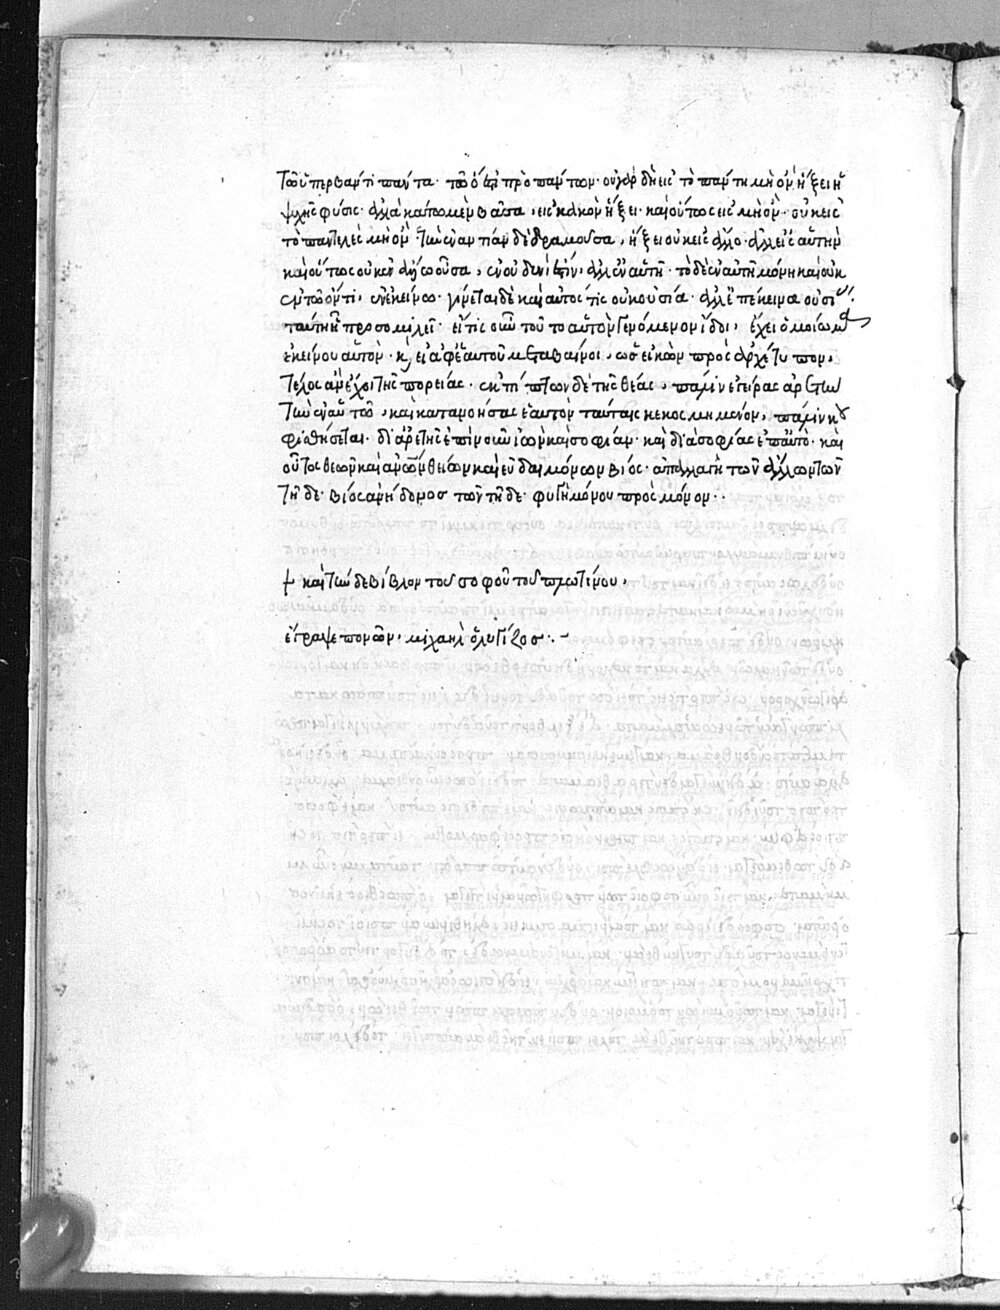 τῶ ὑπερβάντι πάντα· τὸ ὅ ἐστι πρὸ πάντων· οὐ γὰρ δὴ εἰς τὸ πάντη μὴ ὂν ἥξει ἡ
ψυχῆς φύσις· ἀλλὰ κάτω μὲν βᾶσα, εἰς κακὸν ἥξει· καὶ οὕτως εἰς μὴ ὂν· οὐκ εἰς
τὸ παντελὲς μὴ ὄν· τὴν ἐναντίαν δὲ δραμοῦσα, ἥξει οὐκ εἰς ἄλλο· ἀλλ' εἰς αὑτὴν
καὶ οὕτως οὐκ ἐν ἄλλω οὖσα, ἐν οὐδενί ἐστιν, ἀλλ' ἐν αὑτῆ· τὸ δὲ ἐν αὑτῆ μόνη καὶ οὐκ
ἐν τῶ ὄντι, ἐν ἐκείνω· γίνεται δὲ καὶ αὐτός τις οὐκ οὐσία· ἀλλ' ἐπέκεινα οὐσίας
ταύτη ἧ προσομιλεῖ· εἴ τις οὖν τοῦτο αὑτὸν γενόμενον ἴδοι, ἔχει ὁμοίωμα
ἐκείνου αὑτὸν· κ εἰ ἀφ' ἑαυτοῦ μεταβαίνοι, ὡς εἰκὼν πρὸς ἀρχέτυπον,
τέλος ἂν ἔχοι τῆς πορείας· ἐκπίπτων δὲ τῆς θέας, πάλιν ἐγείρας ἀρετὴν
τὴν ἐν αὑτῶ, καὶ κατανοήσας ἑαυτὸν ταύταις κεκοσμημένον, πάλιν κου
φισθήσεται· δι' ἀρετῆς ἐπὶ νοῦν ἰὼν καὶ σοφίαν· καὶ διὰ σοφίας ἐπ' αὐτό· καὶ
οὗτος θεῶν καὶ ἀνθρώπων θείων καὶ εὐδαιμόνων βίος· ἀπαλλαγὴ τῶν ἄλλων τῶν
τῆδε· βίος ἀνήδονος τῶν τῆδε· φυγὴ μόνου πρὸς μόνον··
καὶ τὴν δε βίβλον τοῦ σοφοῦ τοῦ πλωτίνου,
ἔγραψε πονῶν, μιχαὴλ ὁ λυγίζος·